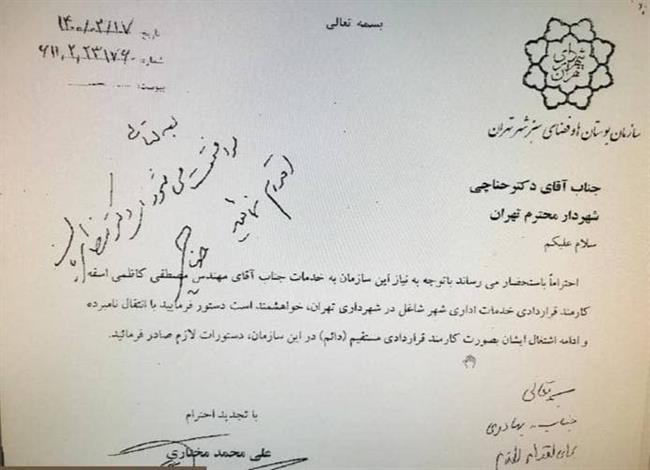 بسمه تعالی
تاریخ ۱۴۰۰/۰۲/۱۷
شماره ۶۱۱,۲,۲۳۱۷۶۰
پیوست:
شهرداری تهران
سازمان بوستان ها و فضای سبز شهر تهران
جناب آقای دکتر حناچی
شهردار محترم تهران
سلام علیکم
احتراماً باستحضار می رساند باتوجه به نیاز این سازمان به خدمات جناب آقای مهندس مصطفی کاظمی اسفه
کارمند قراردادی خدمات اداری شهر شاغل در شهرداری تهران، خواهشمند است دستور فرمایید با انتقال نامبرده
و ادامه اشتغال ایشان بصورت کارمند قراردادی مستقیم (دائم) در این سازمان، دستورات لازم صادر فرمائید.
موافقت می شود
اقدام نمائید
با تجدید احترام
علی محمد مختاری
بسمه تعالی
جناب بهادری
برای اقدام لازم